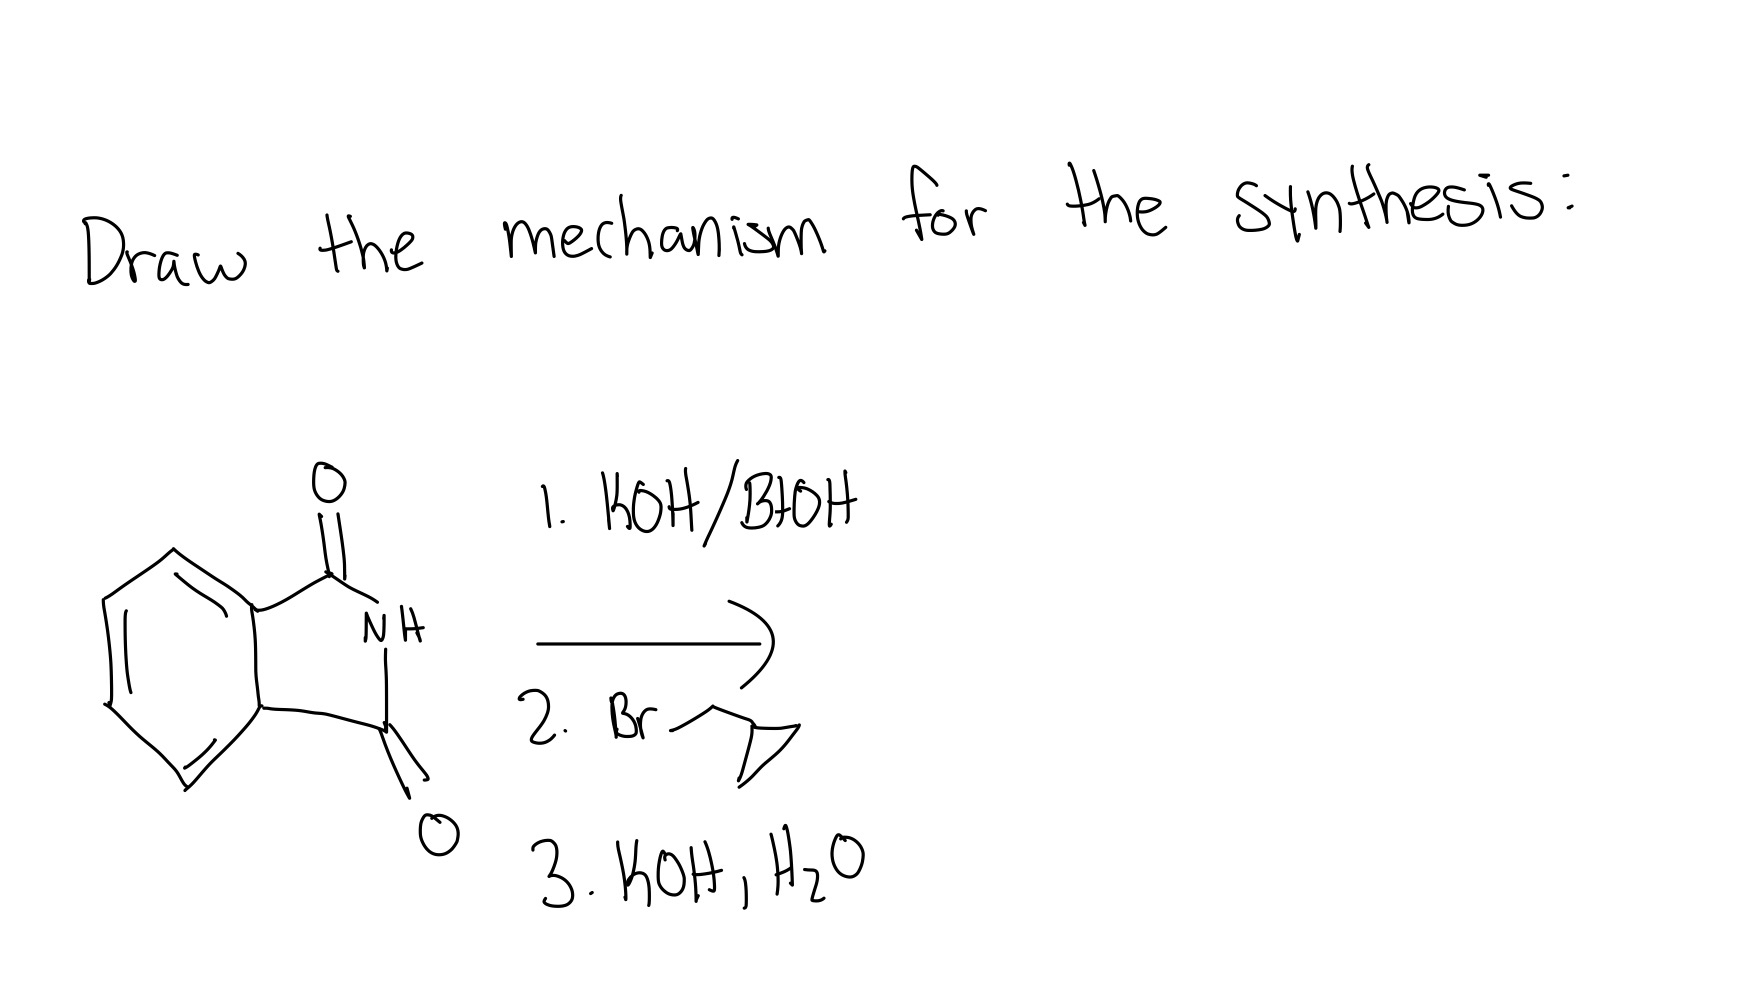 Draw the mechanism for the synthesis:
O
1. KOH/EtOH
NH
2. Br
O
3. KOH, H₂O